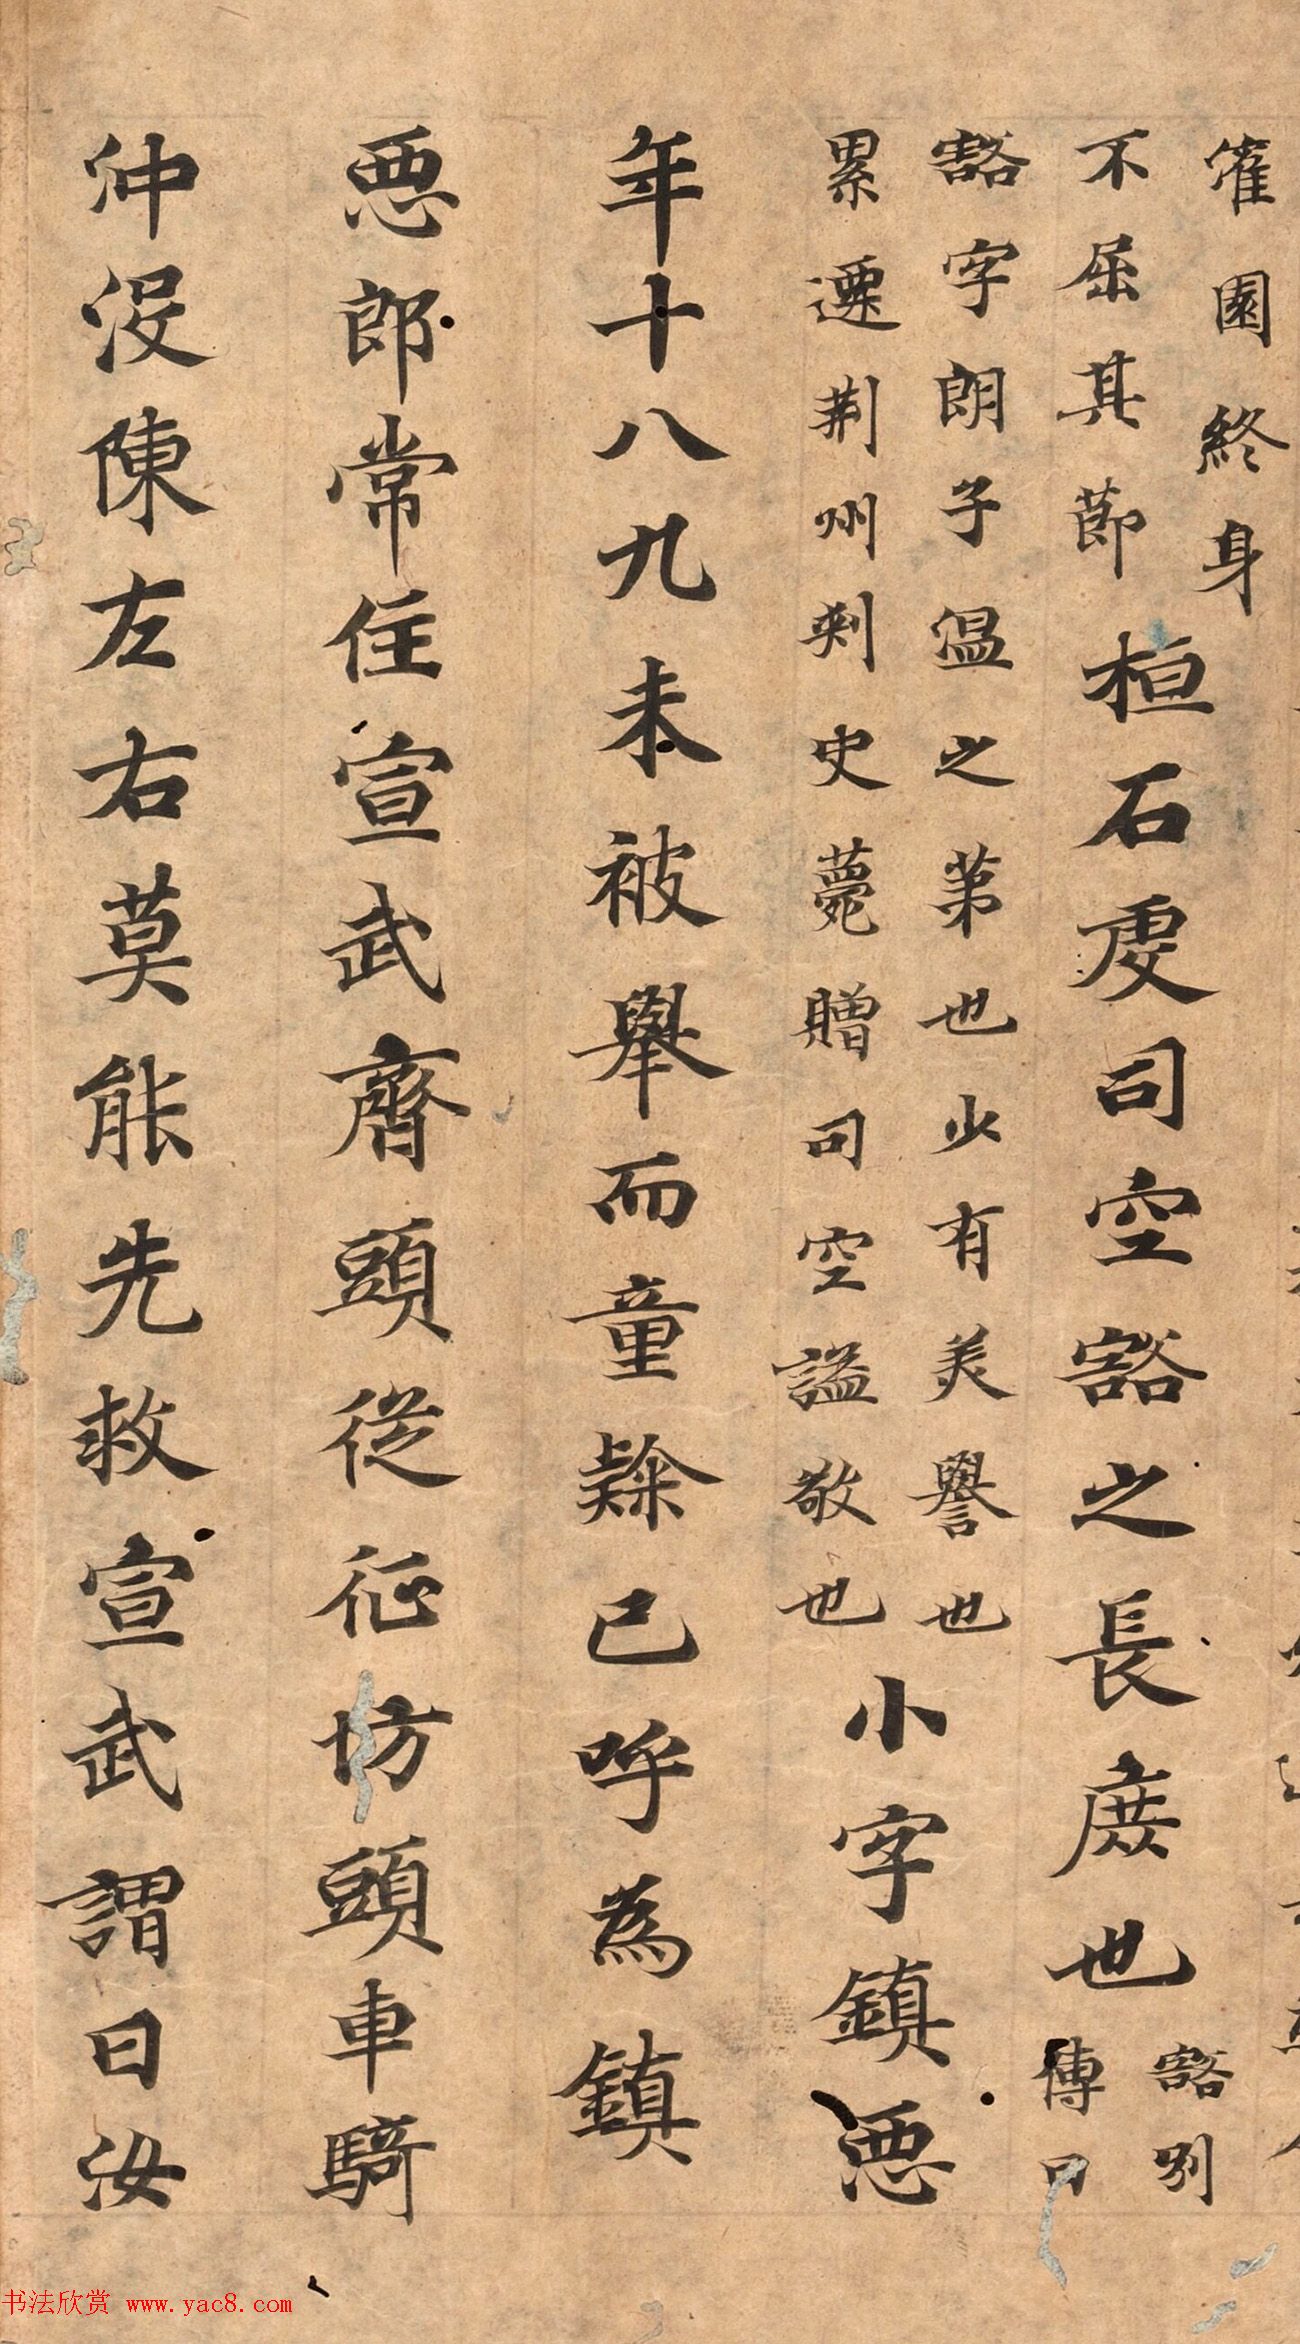 窟園終身
不屈其莭
桓石虔司空豁之長庶也
豁别
傳曰
豁字朗子温之苐也少有美譽也
累遷荆州刺史薨贈司空謚敬也
小字鎮惡
年十八九未被舉而童隸已呼為鎮
惡郎常住宣武齋頭從征枋頭車騎
仲没陳左右莫能先救宣武謂曰汝
书法欣赏 www.yac8.com